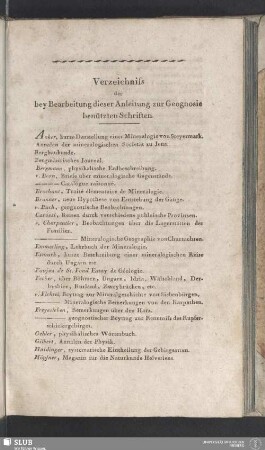 Verzeichniſs
der
bey Bearbeitung dieser Anleitung zur Geognosie
benützten Schriften.
Anker, kurze Darstellung einer Mineralogie von Steyermark.
Annalen der mineralogischen Societät zu Jena.
Bergbaukunde.
Bergmännisches Journal.
Bergmann, physikalische Erdbeschreibung.
v. Born, Briefe über mineralogische Gegenstände.
Catalogue raisonné.
Brochant, Traité élémentaire de Mineralogie.
Brunner, neue Hypothese von Entstehung der Gänge.
v. Buch, geognostische Beobachtungen.
Carozzi, Reisen durch verschiedene pohlnische Provinzen.
v. Charpentier, Beobachtungen über die Lagerstätten der
Fossilien.
Mineralogische Geographie von Chursachsen.
Emmerling, Lehrbuch der Mineralogie.
Esmark, kurze Beschreibung einer mineralogischen Reise
durch Ungarn etc.
Faujas de St. Fond Essay de Géologie.
Ferber, über Böhmen, Ungarn, Idria, Wälschland, Der-
byshire, Kurland, Zweybrücken, etc.
v. Fichtel, Beytrag zur Mineralgeschichte von Siebenbürgen.
Mineralogische Bemerkungen von den Karpathen.
Freyesleben, Bemerkungen über den Harz.
geognostischer Beytrag zur Kenntniſs des Kupfer-
schiefergebirges.
Gehler, physikalisches Wörterbuch.
Gilbert, Annalen der Physik.
Haidinger, systematische Eintheilung der Gebirgsarten.
Höpfner, Magazin für die Naturkunde Helvetiens.
SLUB
Wir führen Wissen.